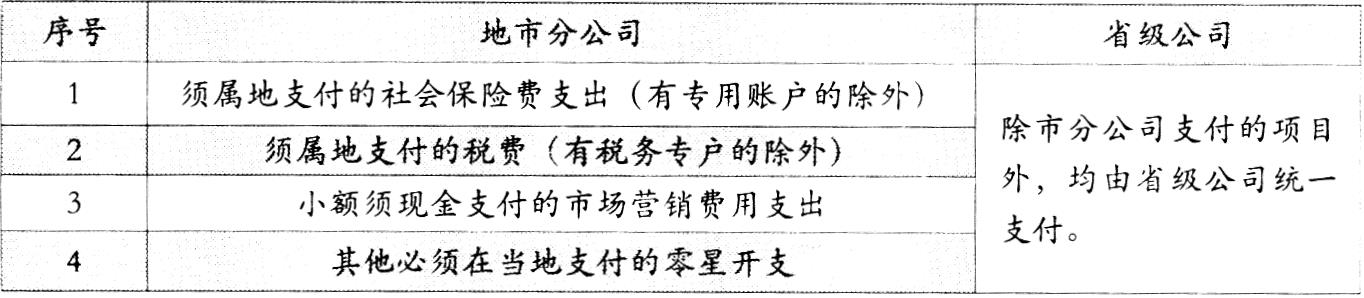 序号 地市分公司 省级公司
1 须属地支付的社会保险费支出（有专用账户的除外）
2 须属地支付的税费（有税务专户的除外）
3 小额须现金支付的市场营销费用支出
4 其他必须在当地支付的零星开支
除市分公司支付的项目
外，均由省级公司统一
支付。